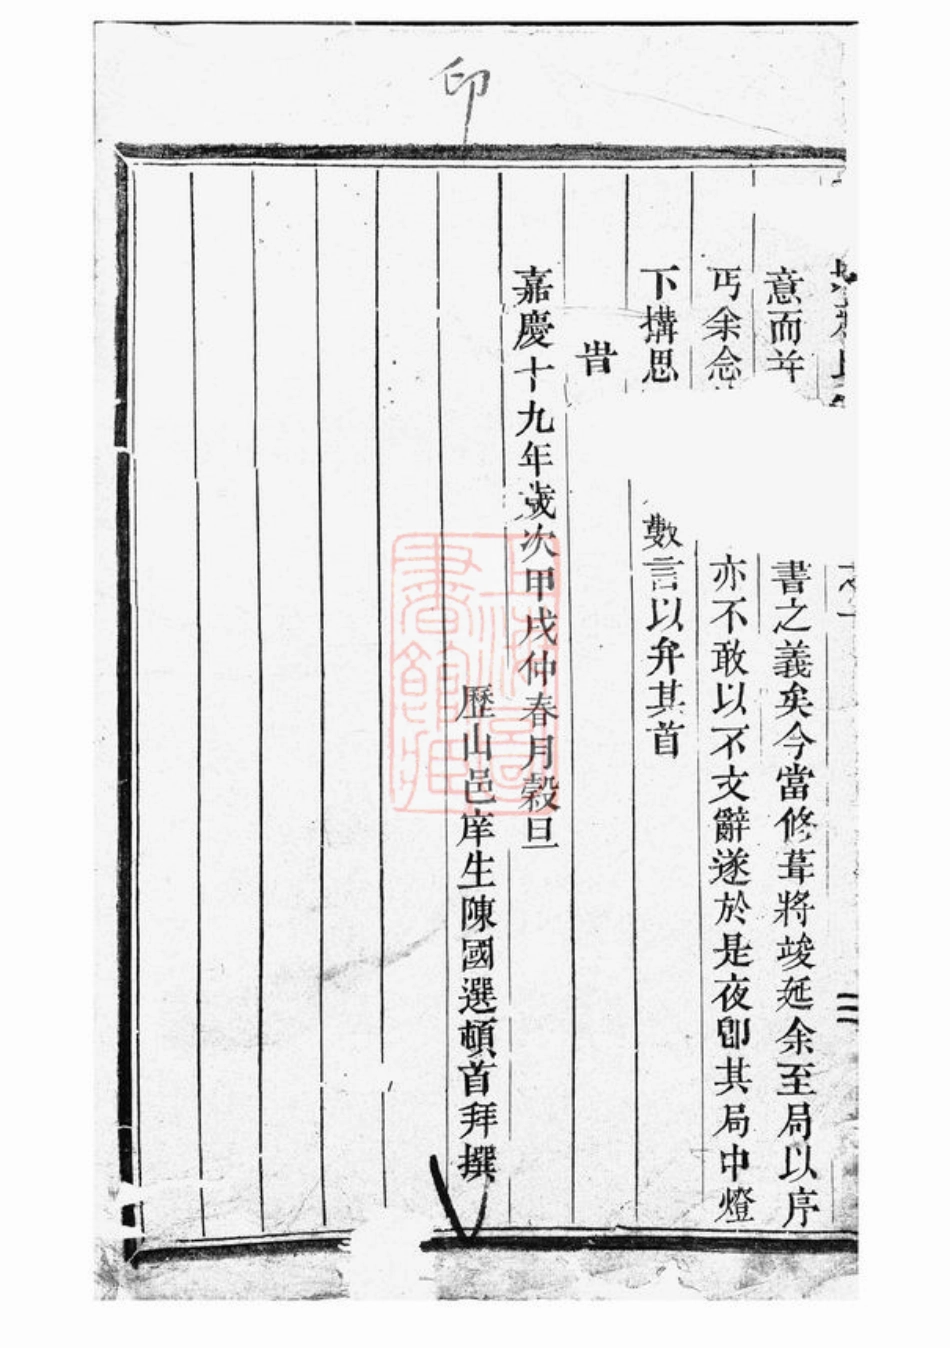 印
意而并
書之義矣今當修葺將竣延余至局以序
丐余念
亦不敢以不文辭遂於是夜卽其局中燈
下搆思
數言以弁其首
旹
嘉慶十九年歲次甲戌仲春月穀旦
歷山邑庠生陳國選頓首拜撰
上海圖書館藏
二